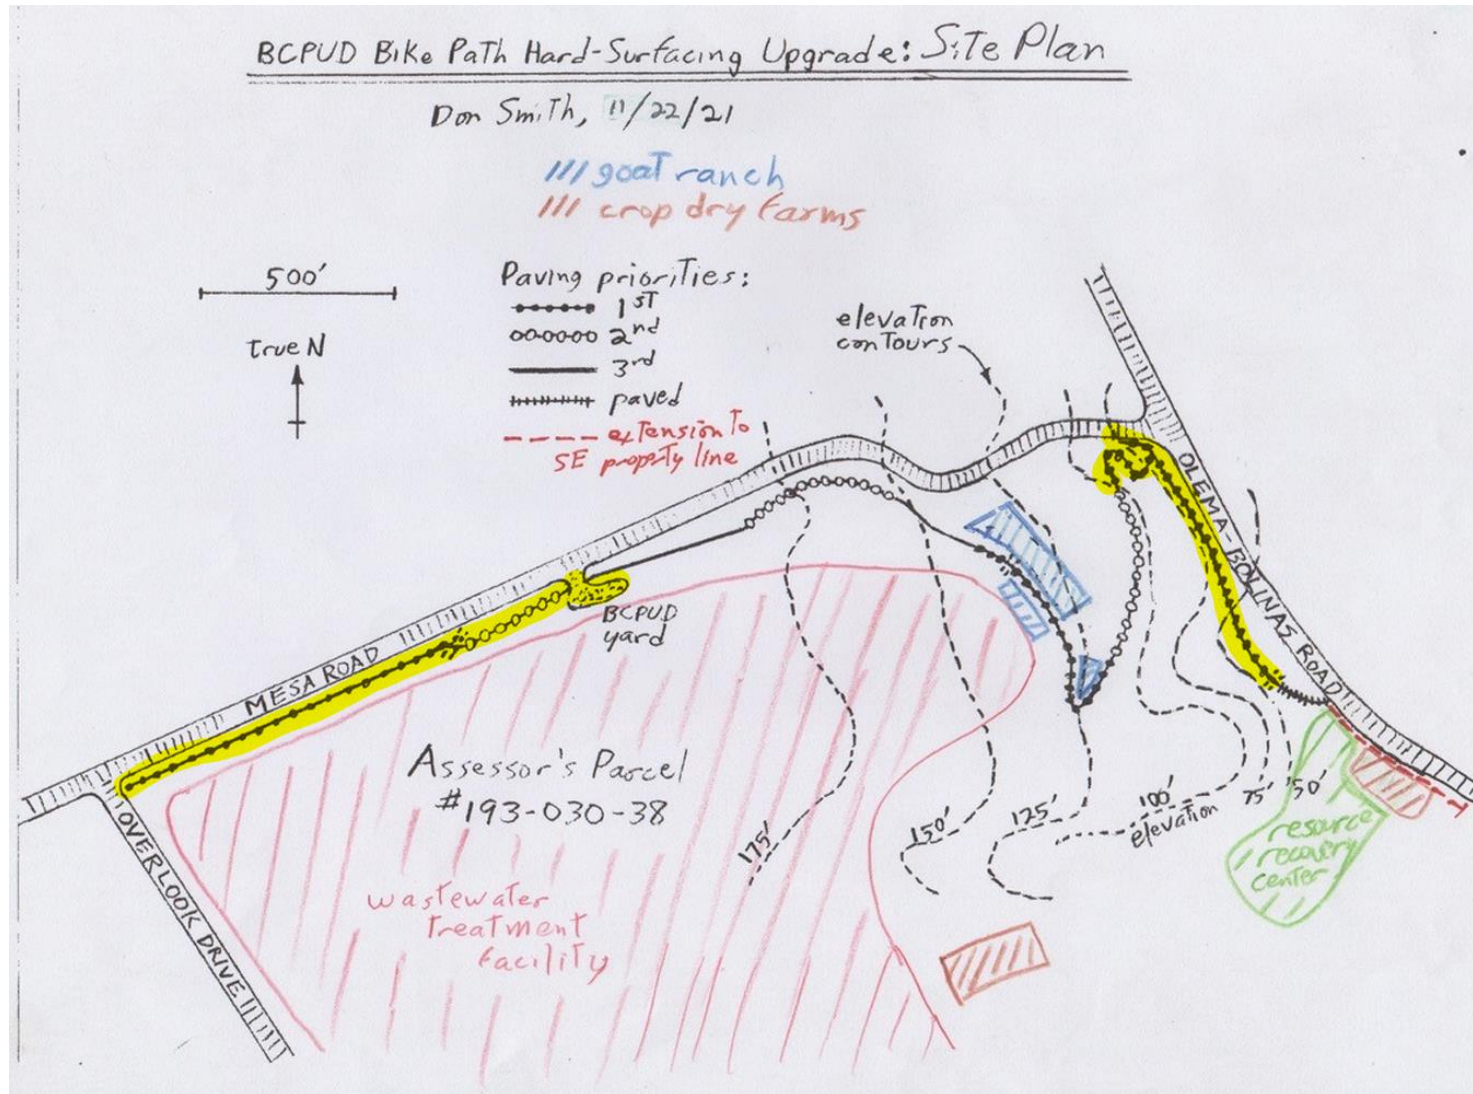 BCPUD Bike Path Hard-Surfacing Upgrade: Site Plan
Don Smith, 11/22/21
/// goat ranch
/// crop dry farms
500'
True N
Paving priorities:
1ST
2nd
3rd
paved
extension to
SE property line
elevation
contours
OLEMA-BOLINAS ROAD
BCPUD
yard
MESA ROAD
Assessor's Parcel
#193-030-38
OVERLOOK DRIVE
wastewater
treatment
facility
175'
150'
125'
100'
elevation
75'
50'
resource
recovery
center